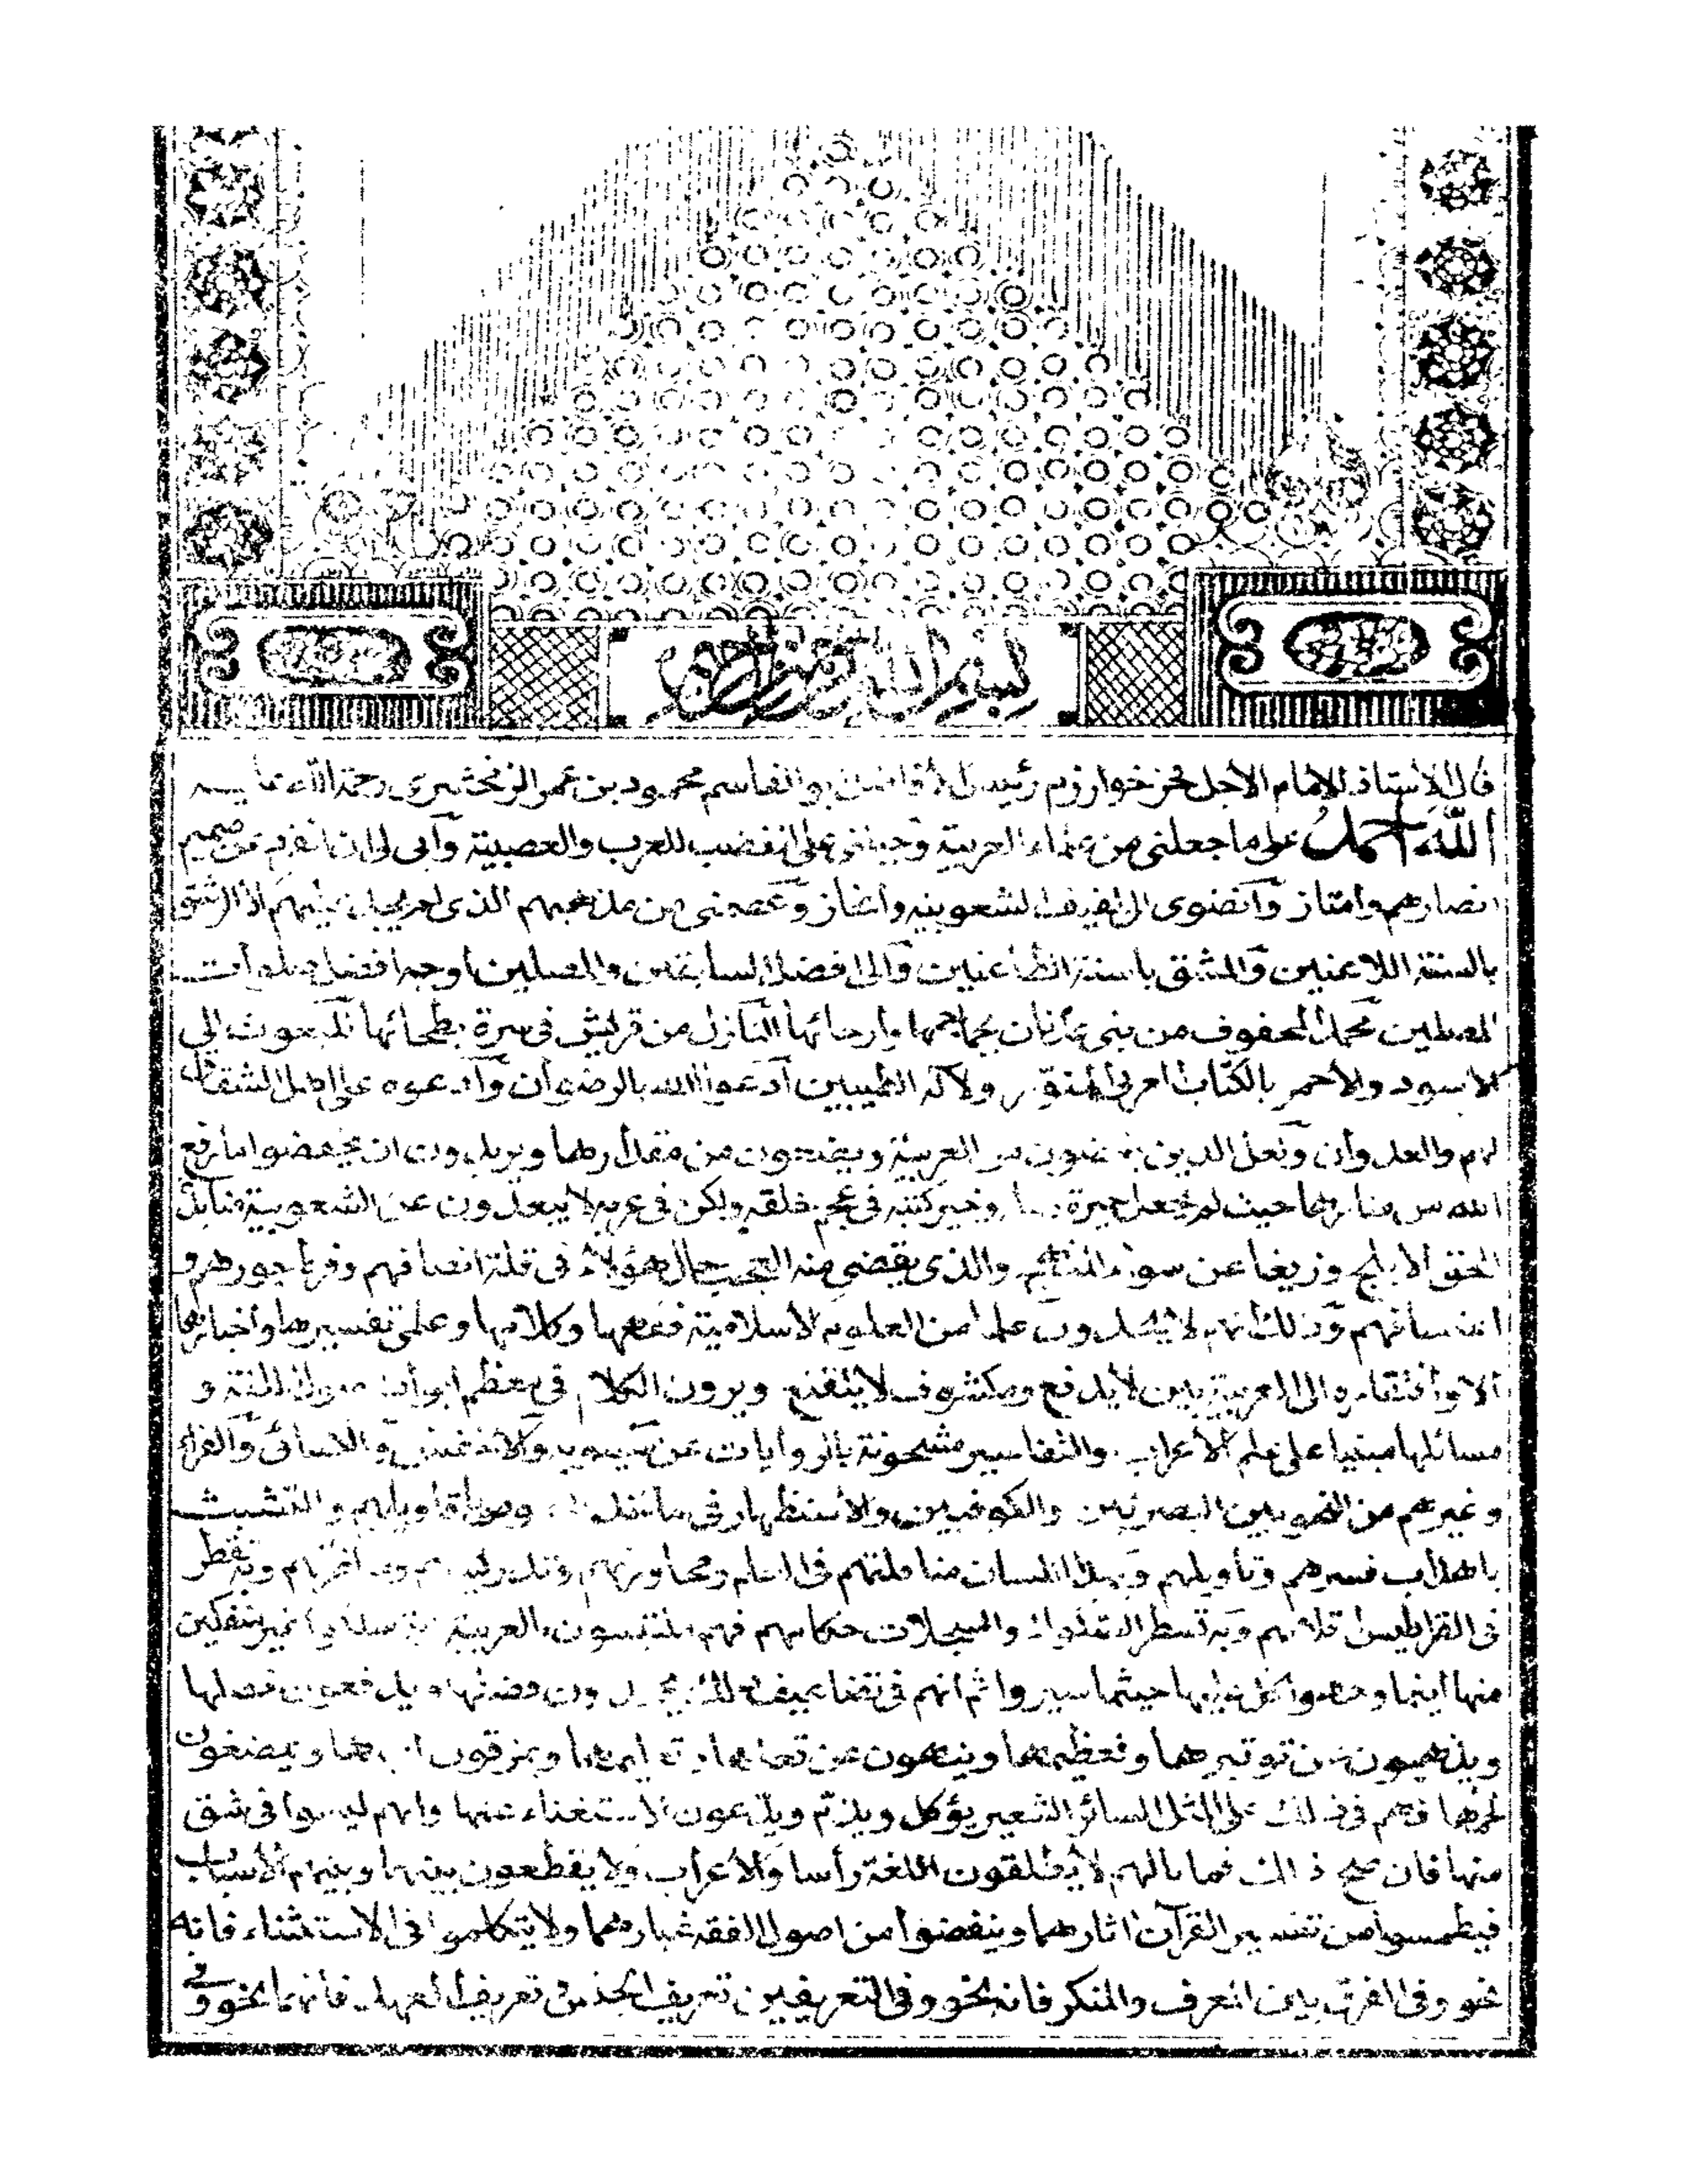 بسم الله الرحمن الرحيم
قال الاستاذ الامام الاجل فخر خوارزم رئيس الافاضل ابو القاسم محمود بن عمر الزمخشرى رحمة الله عليه
الله احمد على ما جعلنى من علماء العربية وجبلنى على الغضب للعرب والعصبية وابى لى ان انفرد عن صميم
انصارهم وامتاز وانضوى الى لفيف الشعوبية وانحاز وعصمنى من مذهبهم الذى لم يجد عليهم الا الرشق
بالسنة اللاعنين والمشق باسنة الطاعنين والى افضل السابقين والمصلين اوجه افضل صلوات
المصلين محمد المحفوف من بنى عدنان بجماجمها وارحائها النازل من قريش فى سرة بطحائها المبعوث الى
الاسود والاحمر بالكتاب العربى المنور ولآله الطيبين ادعو الله بالرضوان وادعوه على اهل الشقاق
لهم والعدوان ولعل الذين يغضون من العربية ويضعون من مقدارها ويريدون ان يخفضوا ما رفع
الله من منارها حيث لم يجعل خيرة وخير كتبه فى عجم خلقه ولكن فى عربه لا يبعدون عن الشعوبية منابذة
للحق الابلج وزيغا عن سواء المنهج والذى يقضى منه العجب حال هؤلاء فى قلة انصافهم وفرط جورهم و
اعتسافهم وذلك انهم لا يجدون علما من العلوم الاسلامية فقهها وكلامها وعلمى تفسيرها واخبارها
الا وافتقاره الى العربية بين لا يدفع ومكشوف لا يتقنع ويرون الكلام فى معظم ابواب اصول الفقه و
مسائلها مبنيا على علم الاعراب والتفاسير مشحونة بالروايات عن سيبويه والاخفش والكسائى والفراء
وغيرهم من النحويين البصريين والكوفيين والاستظهار فى ماخذ باقاويلهم والتشبث
باهداب فسرهم وتأويلهم وبهذا اللسان مناقلتهم فى العلم ومحاورتهم وتدريسهم ومناظرتهم وبه تقطر
فى القراطيس اقلامهم وبه تسطر الصكوك والسجلات حكامهم فهم ملتبسون بالعربية اية سلكوا غير منفكين
منها اينما وجهوا كل عليها حيثما سيروا ثم انهم فى تضاعيف ذلك يجحدون فضلها ويدفعون خصلها
ويذهبون عن توقيرها وتعظيمها وينهون عن تعلمها وتعليمها ويمزقون اديمها ويمضغون
لحمها فهم فى ذلك على المثل السائر الشعير يؤكل ويذم ويدعون الاستغناء عنها وانهم ليسوا فى شق
منها فان صح ذلك فما بالهم لا يطلقون اللغة رأسا والاعراب ولا يقطعون بينها وبينهم الاسباب
فيطمسوا من تفسير القرآن اثارهما وينفضوا من اصول الفقه غبارهما ولا يتكلموا فى الاستثناء فانه
نحو وفى الفرق بين المعرف والمنكر فانه نحو وفى التعريفين تعريف الجنس وتعريف العهد فانهما نحو وفى